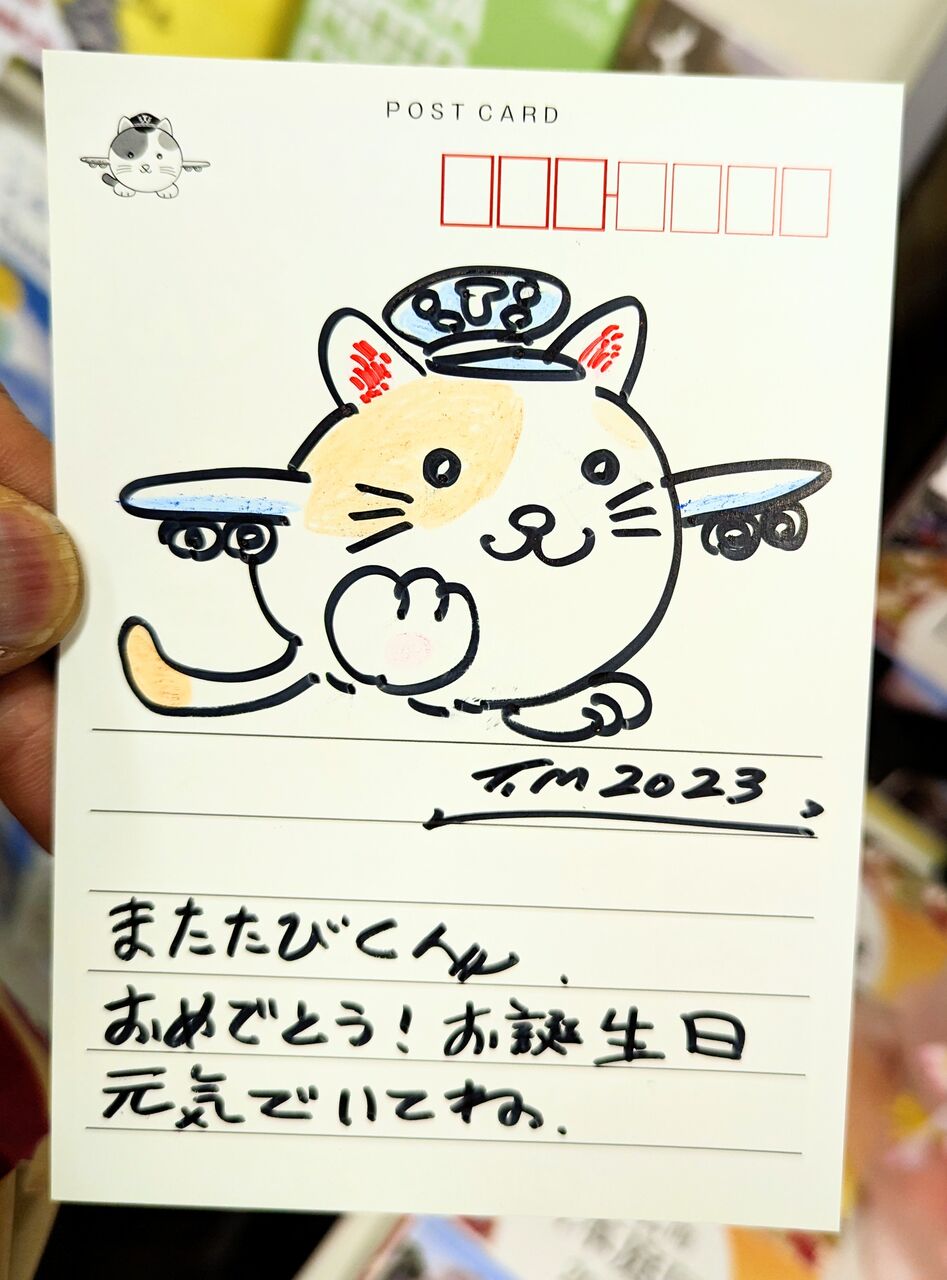 POST CARD
T.M 2023
またたびくん.
おめでとう!お誕生日
元気でいてね.